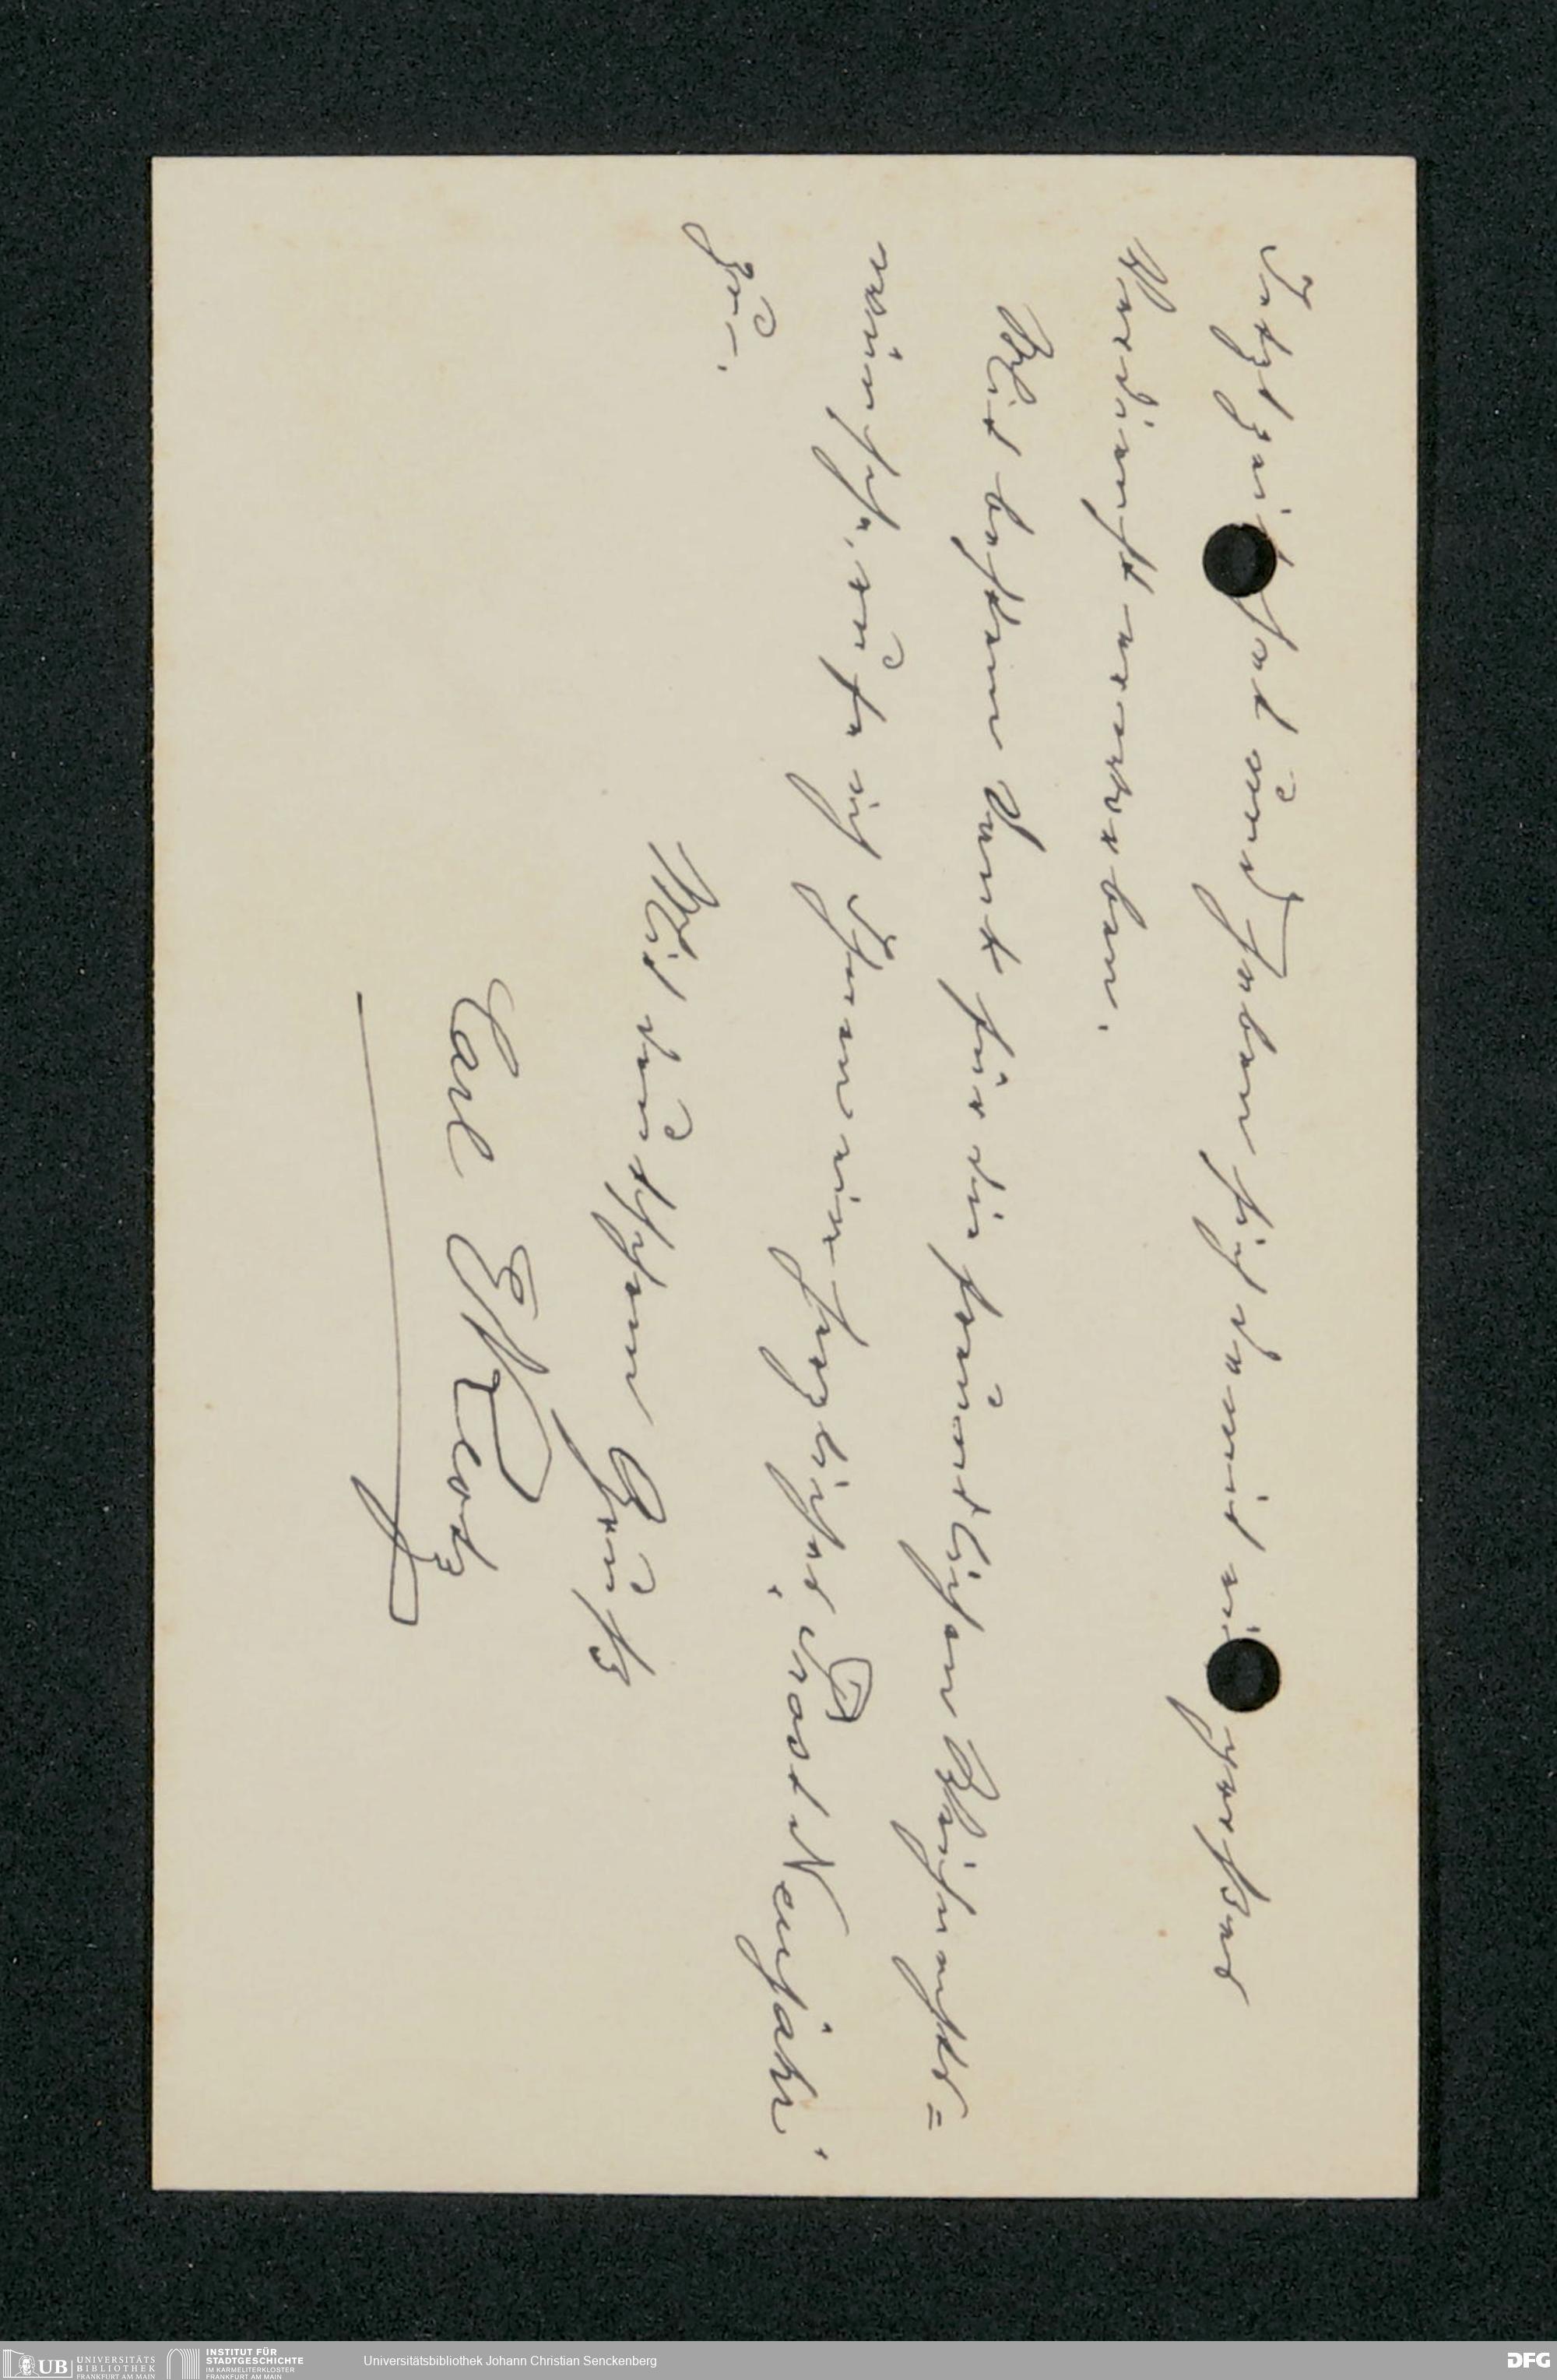 Jetztzeit hat und haben sich damit ein großes
Verdienst erworben.
Mit bestem Dank für die freundlichen Weihnachts=
wünsche, rufe ich Ihnen ein herzliches "Prost Neujahr"
zu. –
Mit deutschem Gruß
Carl E. Klotz
UB UNIVERSITÄTS BIBLIOTHEK FRANKFURT AM MAIN
INSTITUT FÜR STADTGESCHICHTE IM KARMELITERKLOSTER FRANKFURT AM MAIN
Universitätsbibliothek Johann Christian Senckenberg
DFG